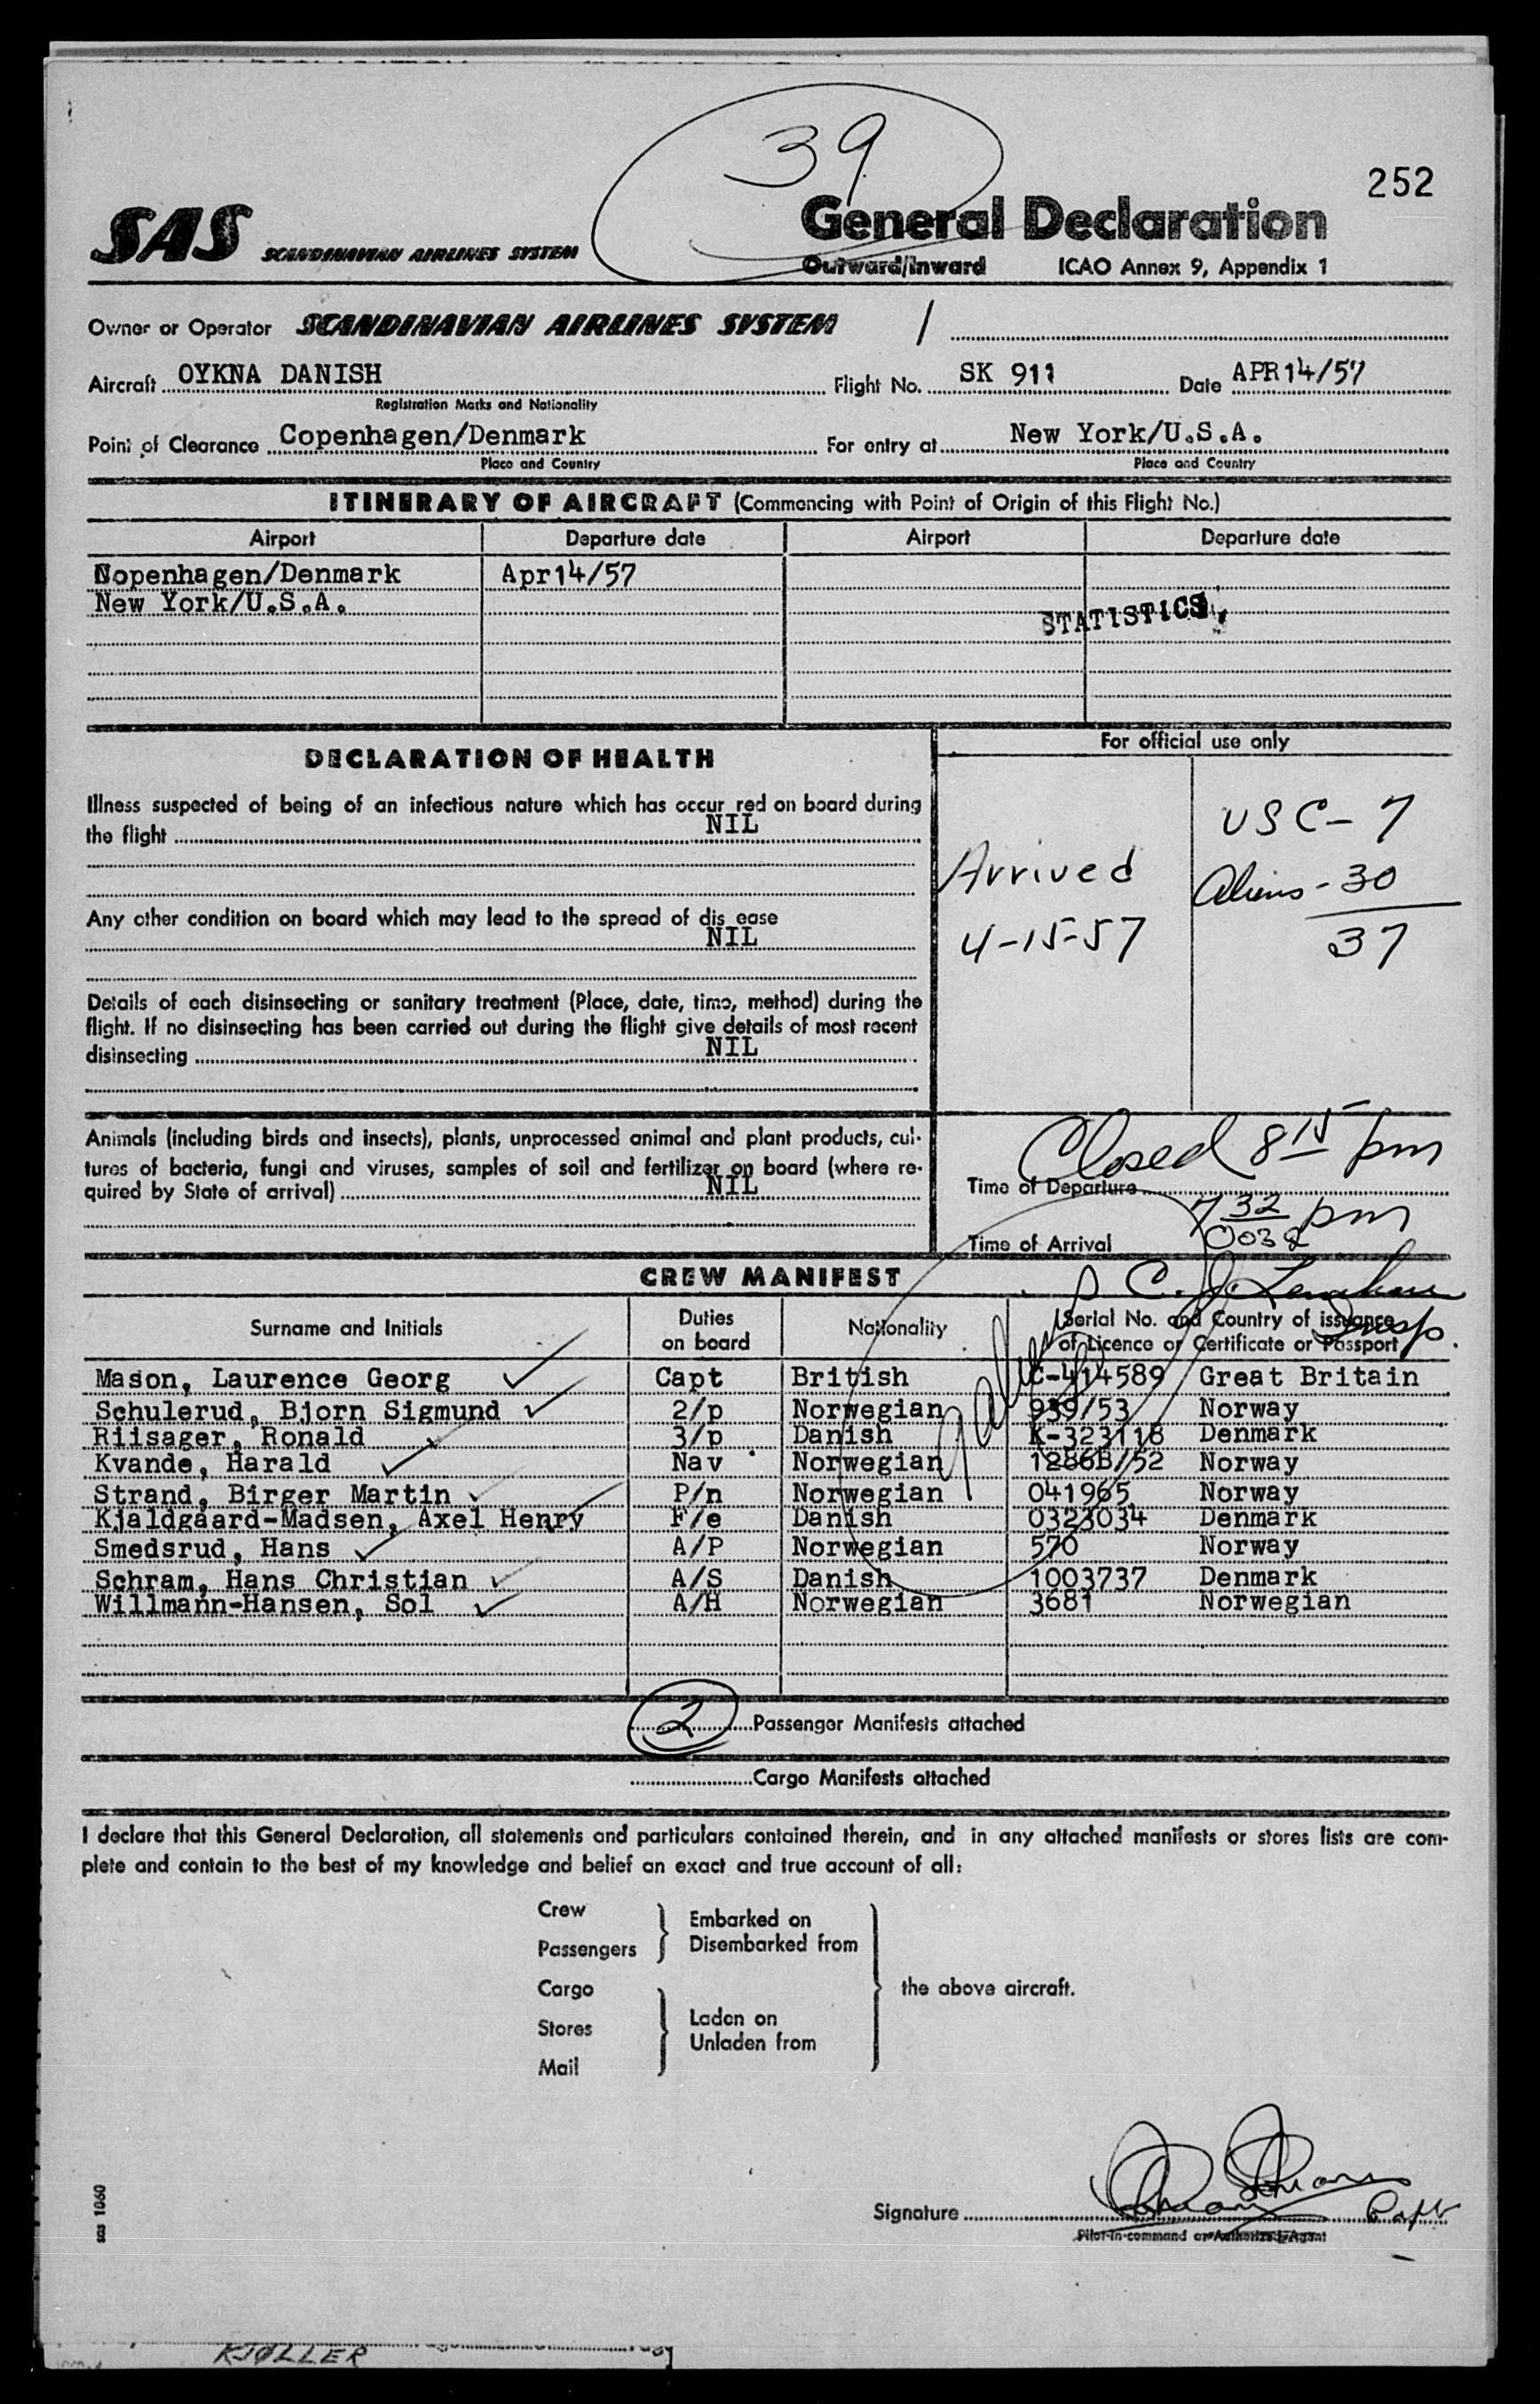 39
252
SAS SCANDINAVIAN AIRLINES SYSTEM
General Declaration
Outward/Inward ICAO Annex 9, Appendix 1
Owner or Operator SCANDINAVIAN AIRLINES SYSTEM /
Aircraft OYKNA DANISH Flight No. SK 911 Date APR14/57
Registration Marks and Nationality
Point of Clearance Copenhagen/Denmark For entry at New York/U.S.A.
Place and Country Place and Country
ITINERARY OF AIRCRAFT (Commencing with Point of Origin of this Flight No.)
Airport Departure date Airport Departure date
Copenhagen/Denmark Apr14/57
New York/U.S.A.
STATISTICS
DECLARATION OF HEALTH
Illness suspected of being of an infectious nature which has occur red on board during
the flight NIL
Any other condition on board which may lead to the spread of dis ease
NIL
Details of each disinsecting or sanitary treatment (Place, date, time, method) during the
flight. If no disinsecting has been carried out during the flight give details of most recent
disinsecting NIL
Animals (including birds and insects), plants, unprocessed animal and plant products, cul-
tures of bacteria, fungi and viruses, samples of soil and fertilizer on board (where re-
quired by State of arrival) NIL
For official use only
Arrived
4-15-57
USC- 7
Aliens - 30
37
Closed 8 15 pm
Time of Departure
7 32 pm
Time of Arrival
CREW MANIFEST
Surname and Initials Duties on board Nationality Serial No. and Country of issuance of Licence or Certificate or Passport
Insp.
Mason, Laurence Georg Capt British C-414589 Great Britain
Schulerud, Bjorn Sigmund 2/p Norwegian 939/53 Norway
Riisager, Ronald 3/p Danish K-323118 Denmark
Kvande, Harald Nav Norwegian 1286B/52 Norway
Strand, Birger Martin P/n Norwegian 041965 Norway
Kjaldgaard-Madsen, Axel Henry F/e Danish 0323034 Denmark
Smedsrud, Hans A/P Norwegian 570 Norway
Schram, Hans Christian A/S Danish 1003737 Denmark
Willmann-Hansen, Sol A/H Norwegian 3681 Norwegian
2 Passenger Manifests attached
Cargo Manifests attached
I declare that this General Declaration, all statements and particulars contained therein, and in any attached manifests or stores lists are com-
plete and contain to the best of my knowledge and belief an exact and true account of all:
Crew
Passengers
Embarked on
Disembarked from
Cargo
Stores
Mail
Laden on
Unladen from
the above aircraft.
Signature Capt
Pilot-in-command or Authorized Agent
sas 1060
KJØLLER